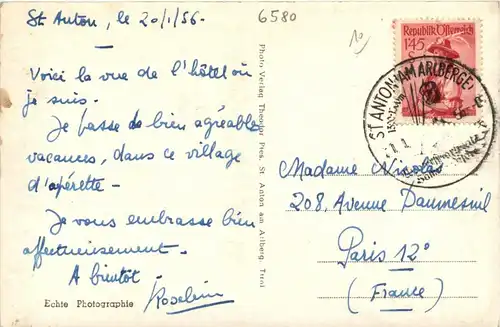 St Anton, le 20/1/56-
6580
Voici la vue de l'hôtel où
je suis.
Je passe de bien agréables
vacances, dans ce village
d'opérette -
Je vous embrasse bien
affectueusement -
A bientôt -
Echte Photographie
Photo-Verlag Theodor Pies, St. Anton am Arlberg, Tirol
Republik Österreich
1·45
ST. ANTON AM ARLBERG
Madame
208, Avenue Daumesnil
Paris 12°
(France)